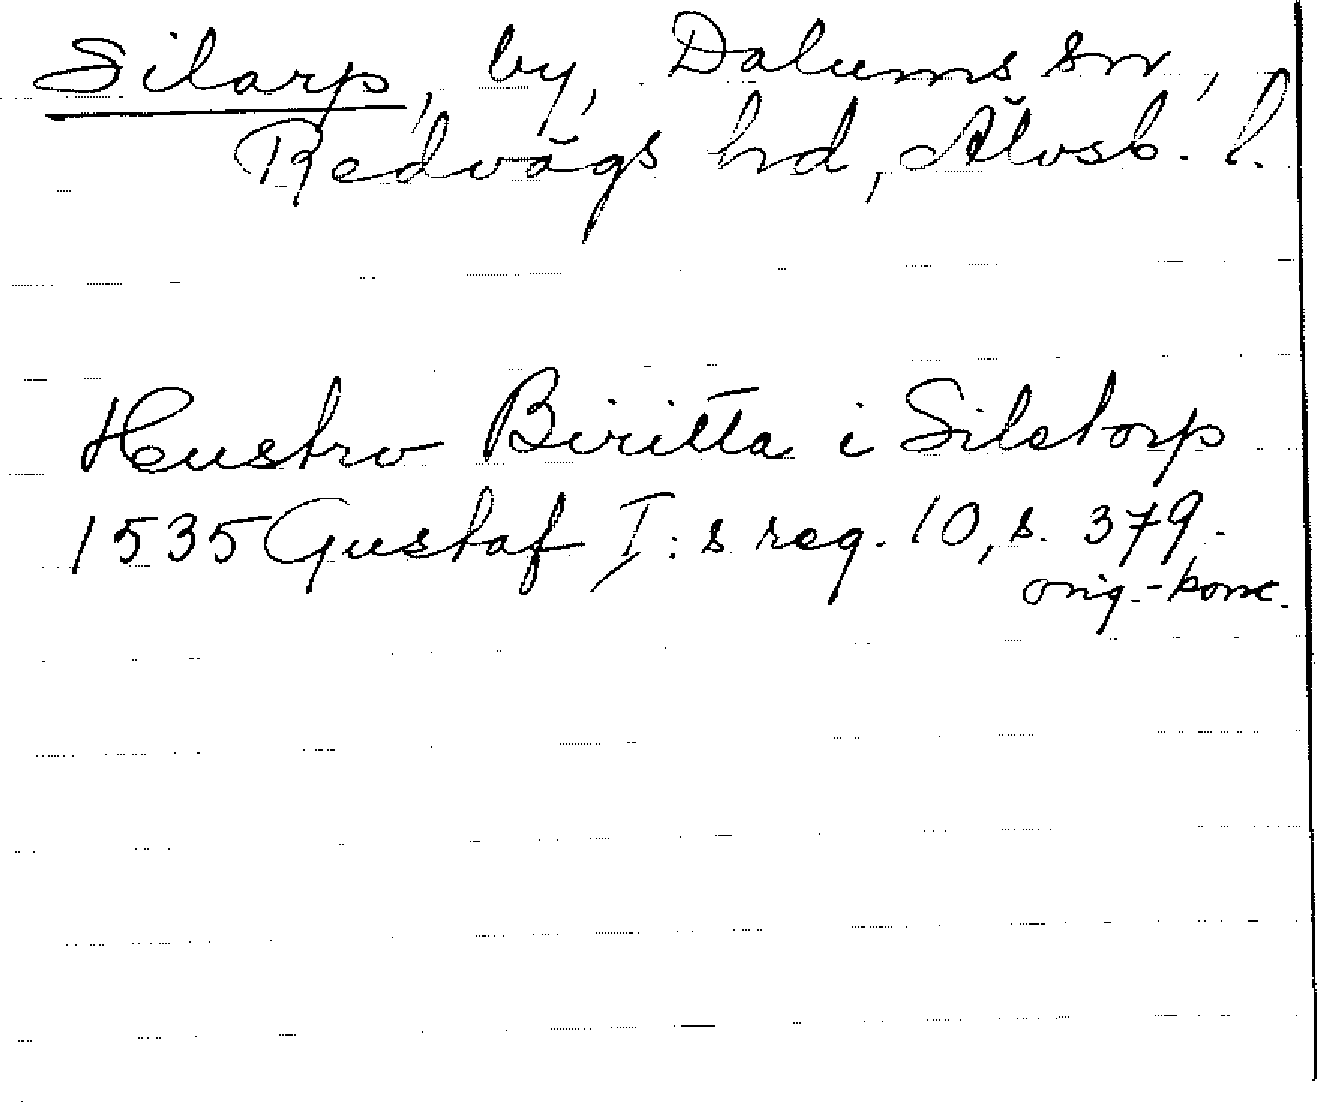 Silarp, by, Dalums sn,
Redvägs hd, Älvsb. l.
Hustrv Biritta i Silstorp
1535 Gustaf I:s reg. 10, s. 379.
orig.-konc.